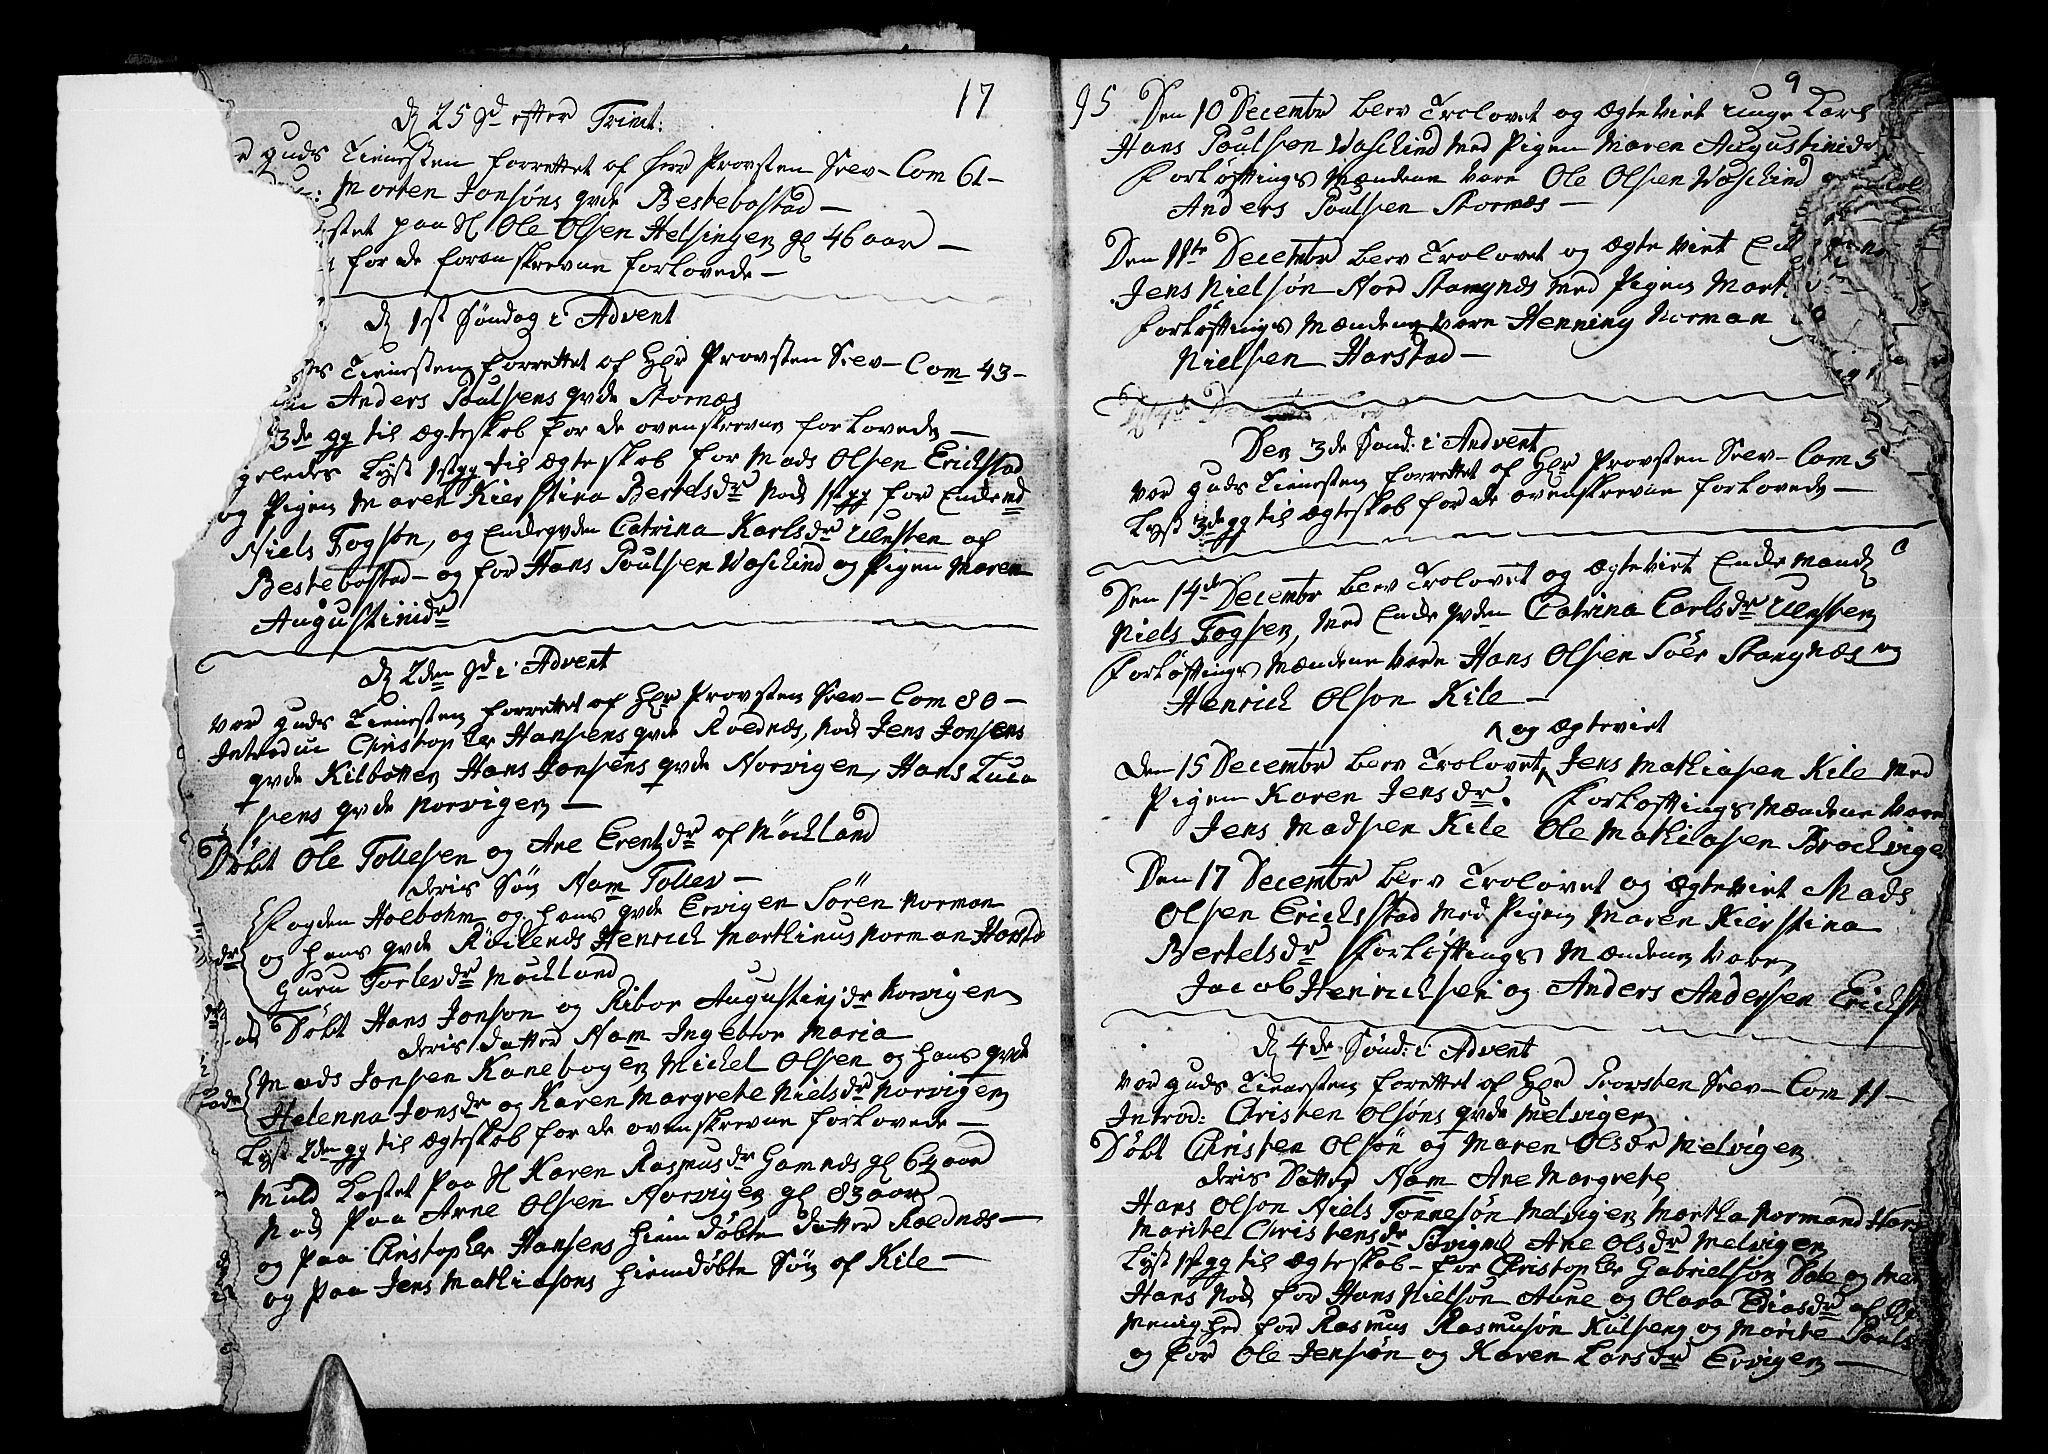 17
D 25 Sd efter Trinit:
guds Tienesten forrettet af herr Provsten Srev— Com 61—
Morten Jonsøns qvde Bestebostad—
paa Sl Ole Olsen Helsingen gl 46 aar—
for de foranskrevne forlovede—
D 1st Søndag i Advent
Tienesten forrettet af Hr Provsten Srev— Com 43—
Anders Poulsens qvde Stornæs
3de gg til Ægteskab for de ovenskrevne forlovede—
Lyst 1st gg til Ægteskab for Mads Olsen Erichstad
og Pigen Maren Kierstina Bertelsdr Nok 1st gg for Enkemd
Niels Fogsøn, og Enkeqvden Catrina Karlsdr Ulvsten af
Bestebostad— og for Hans Poulsen Waskind og Pigen Maren
Augustinidr
D 2den Sd i Advent
Var guds Tienesten forrettet af Hr Provsten Srev— Com 80—
Introdu Christopher Hansens qvde Roednæs, Nok Jens Jonsens
qvde Kilbotten Hans Jonsens qvde Norvigen, Hans Luca
sens qvde Norvigen—
Døbt Ole Tollesen og Ane Erentzdr af Møckland
deris Søn Nam Tollev—
Fogden Holbohm og hans qvde Ervigen Søren Norman
og hans qvde Røckenes Henrich Mathinus Norman Harstd
Guru Torlevsdr Møckland
Døbt Hans Jonson og Ribor Augustinjdr Norvigen
deris datter Nam Ingebor Maria
Mads Jonsen Kanebogen Michel Olsen og hans qvde
fadr Helenna Jonsdr og Karen Margrete Nielsdr Norvigen
Lyst 2den gg til Ægteskab for de ovenskrevne forlovede—
Muld Kastet paa Sl Karen Rasmusdr Gamnæs gl 64 aar
Nok paa Arne Olsen Norvigen gl 83 aar
og paa Christopher Hansens hiemdøbte datter Roednæs—
og paa Jens Mathiasons hiemdøbte Søn af Kile—
95
9
Den 10 Decembr blev Trolovet og Ægteviet unge Karl
Hans Poulsen Waskind med Pigen Maren Augustinidr
Forløftings Mændene vare Ole Olsen Waskind
Anders Poulsen Stornæs—
Den 11te Decembr blev Trolovet og Ægteviet
Jens Nielsøn Nord Stangnæs med Pigen
Forløftings Mændene vare Henning Norman
Nielsen Harstad—
Den 3de Sønd: i Andvent
Var guds Tienesten forrettet af Hr Provsten Srev— Com 5
Lyst 3de gg til Ægteskab for de ovenskrevne forlovede—
Den 14de Decembr blev Trolovet og Ægteviet Enkemand
Niels Fogsen, med Enkeqvden Catrina Carlsdr Ulvsten
Forløftings Mændene vare Hans Olsen Søer Stangnæs og
Henrich Olson Kile—
og Ægteviet
Den 15 Decembr blev Trolovet Jens Mathiasen Kile med
Pigen Karen Jensdr. Forløftings Mændene vare
Jens Madsen Kile Ole Mathiasen Brochvigen
Den 17 Decembr blev Trolovet og Ægteviet Mads
Olsen Erichsstad med Pigen Maren Kierstina
Bertelsdr Forløftings Mændene vare
Jacob Henrichsen og Anders Andersen Erichst
D 4de Sønd: i Advent
Var guds Tienesten forrettet af Hr Provsten Srev— Com 11—
Introd: Christen Olsøns qvde Melvigen
Døbt Christen Olsøn og Maren Olsdr Melvigen
deris Datter Nam Ane Margrete
Hans Olson Niels Tønnesøn Melvigen Martha Normand Hars
Maritel Christensdr Ane Olsdr Melvigen
Lyst 1st gg til Ægteskab— for Christopher Gabrielson Dale og
Hans Nok for Hans Nielsøn Aune og Olava Ediasdr af
Menighed for Rasmus Rasmusøn Kulseng og Marite Pouls
og for Ole Jensøn og Karen Larsdr Ervigen—